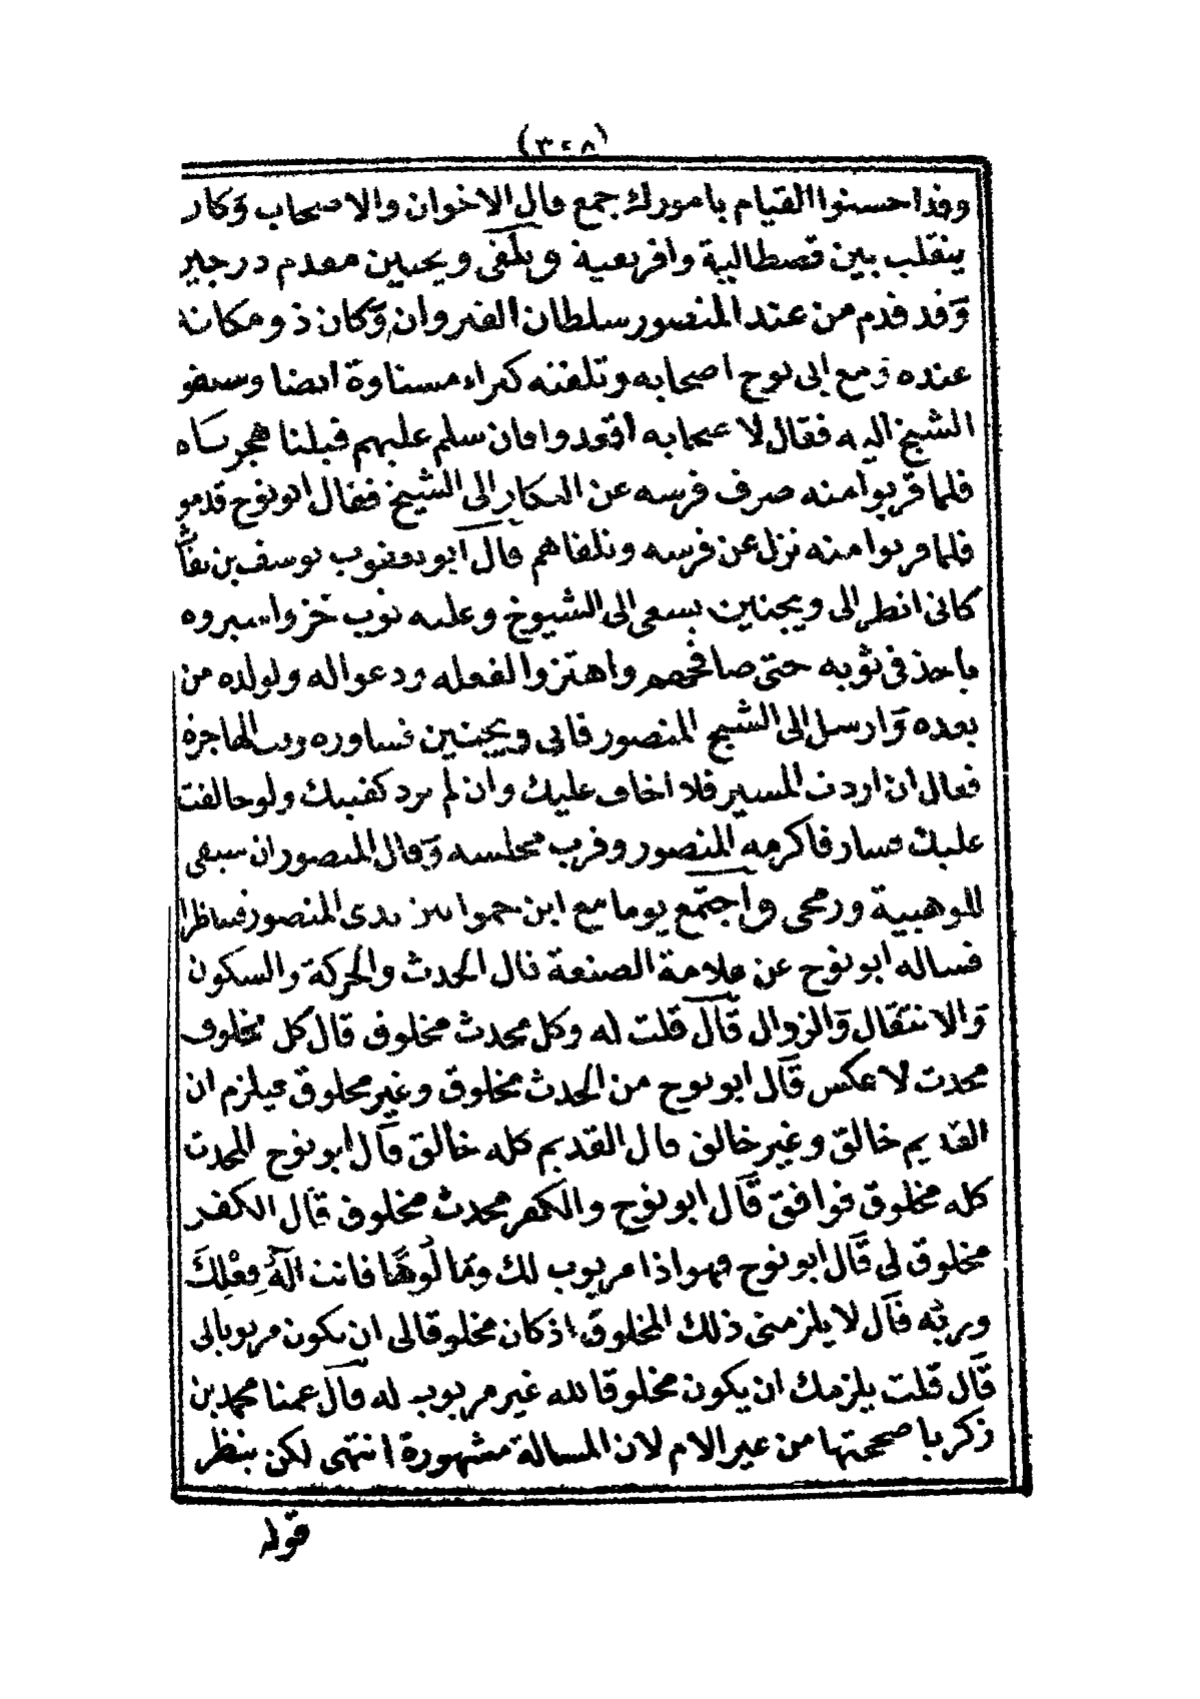 (٣٢٨)
وقد احسنوا القيام بامورك جمع قال الاخوان والاصحاب وكان
ينقلب بين قصطالية وافريقية ويلقى ويجنين مقدم درجين
وقد قدم من عند المنصور سلطان القيروان وكان ذو مكانة
عنده ومع ابى نوح اصحابه وتلقته كبراء مسناوة ايضا
الشيخ اليه فقال لاصحابه اقعدوا فان سلم عليهم قبلنا
فلما قربوا منه صرف فرسه عن الى الشيخ فقال ابو نوح قدموا
فلما قربوا منه نزل عن فرسه وتلقاهم قال ابو يعقوب يوسف بن نفاث
كانى انظر الى ويجنين يسعى الى الشيوخ وعليه ثوب خز
ياخذ فى ثوبه حتى صافحهم واهتزوا لفعله ودعوا له ولولده من
بعده وارسل الى الشيخ المنصور فاتى ويجنين فشاوره وقت الهاجرة
فقال ان اردت المسير فلا اخاف عليك وان لم ترد كفيتك ولو حالفت
عليك فسار فاكرمه المنصور وقرب مجلسه وقال المنصور ان سبقى
للوهبية ورمحى واجتمع يوما مع ابن حموا بين يدى المنصور فتناظرا
فساله ابو نوح عن علامة الصنعة قال الحدث والحركة والسكون
والانتقال والزوال قال قلت له وكل محدث مخلوق قال كل مخلوق
محدث لا عكس قال ابو نوح من الحدث مخلوق وغير مخلوق فيلزم ان
القديم خالق وغير خالق قال القديم كله خالق قال ابو نوح المحدث
كله مخلوق فوافق قال ابو نوح والكفر محدث مخلوق قال الكفر
مخلوق لى قال ابو نوح فهو اذا مربوب لك ومالوها فانت اله فعلك
وربه قال لا يلزمنى ذلك المخلوق اذ كان مخلوقا لى ان يكون مربوبا لى
قال قلت يلزمك ان يكون مخلوقا لله غير مربوب له قال عمنا محمد بن
زكريا صححتها من غير الام لان المسالة مشهورة انتهى لكن ينظر
قوله